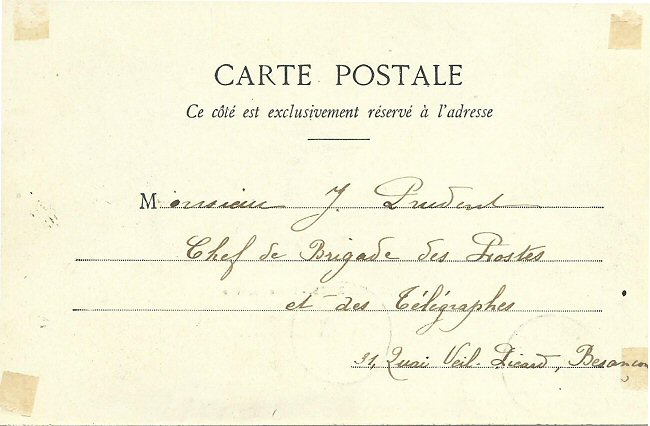 CARTE POSTALE
Ce côté est exclusivement réservé à l'adresse
Monsieur J. Prudent
Chef de Brigade des Postes
et des Télégraphes
31, Quai Veil-Picard, Besançon